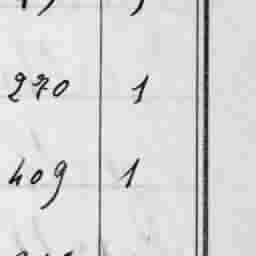 270 1
409 1